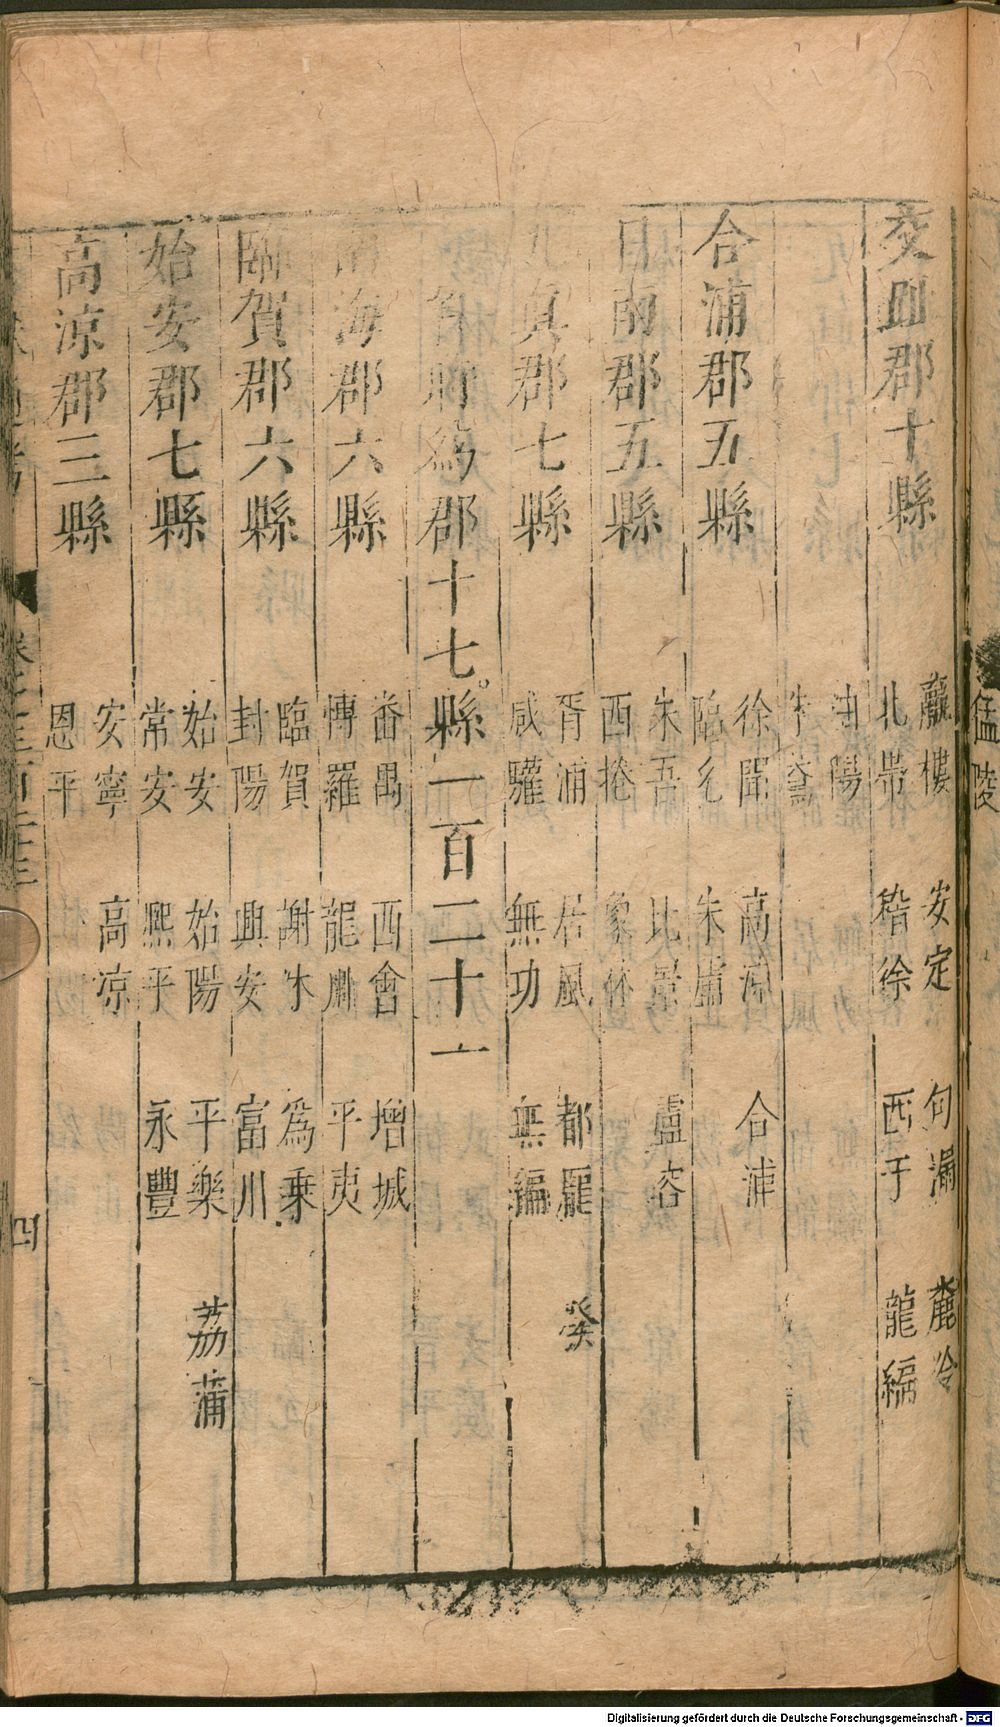 交趾郡十縣
羸𨻻 安定 句漏 麊泠
北帶 稽徐 西于 龍編
曲陽
朱䳒
合浦郡五縣
徐聞 高涼 合浦
臨允 朱盧
日南郡五縣
朱吾 比景 盧容
西捲 象林
九真郡七縣
胥浦 居風 都龐
咸驩 無功 無編
郡十七縣一百二十
南海郡六縣
番禺 西會 增城
博羅 龍川 平夷
臨賀郡六縣
臨賀 謝沐 爲乗
封陽 興安 富川
始安郡七縣
始安 始陽 平樂 荔蒲
常安 熙平 永豐
高涼郡三縣
安寧 高凉
恩平
四
猛陵
Digitalisierung gefördert durch die Deutsche Forschungsgemeinschaft - DFG